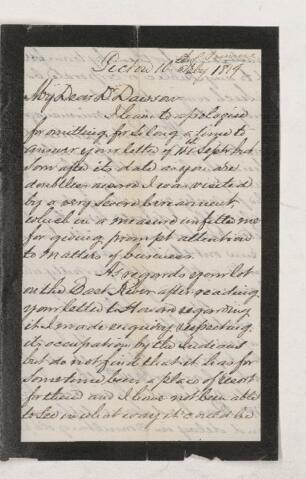 Pictou 10th July 1879
My Dear Dr Dawson
I have to apologise
for omitting for so long a time to
answer your letter of 11th Sept last
soon after its date as you are
doubtless aware I was visited
by a very severe bereavement
which in a measure unfitted me
for giving prompt attention
to matters of business.
As regards your lot
on the Boat River after reading
your letter to Howard regarding
it I made inquiry respecting
its occupation by the Indians
but do not find that it has for
sometime been a place of resort
for them and I have not been able
to see in what way it could be